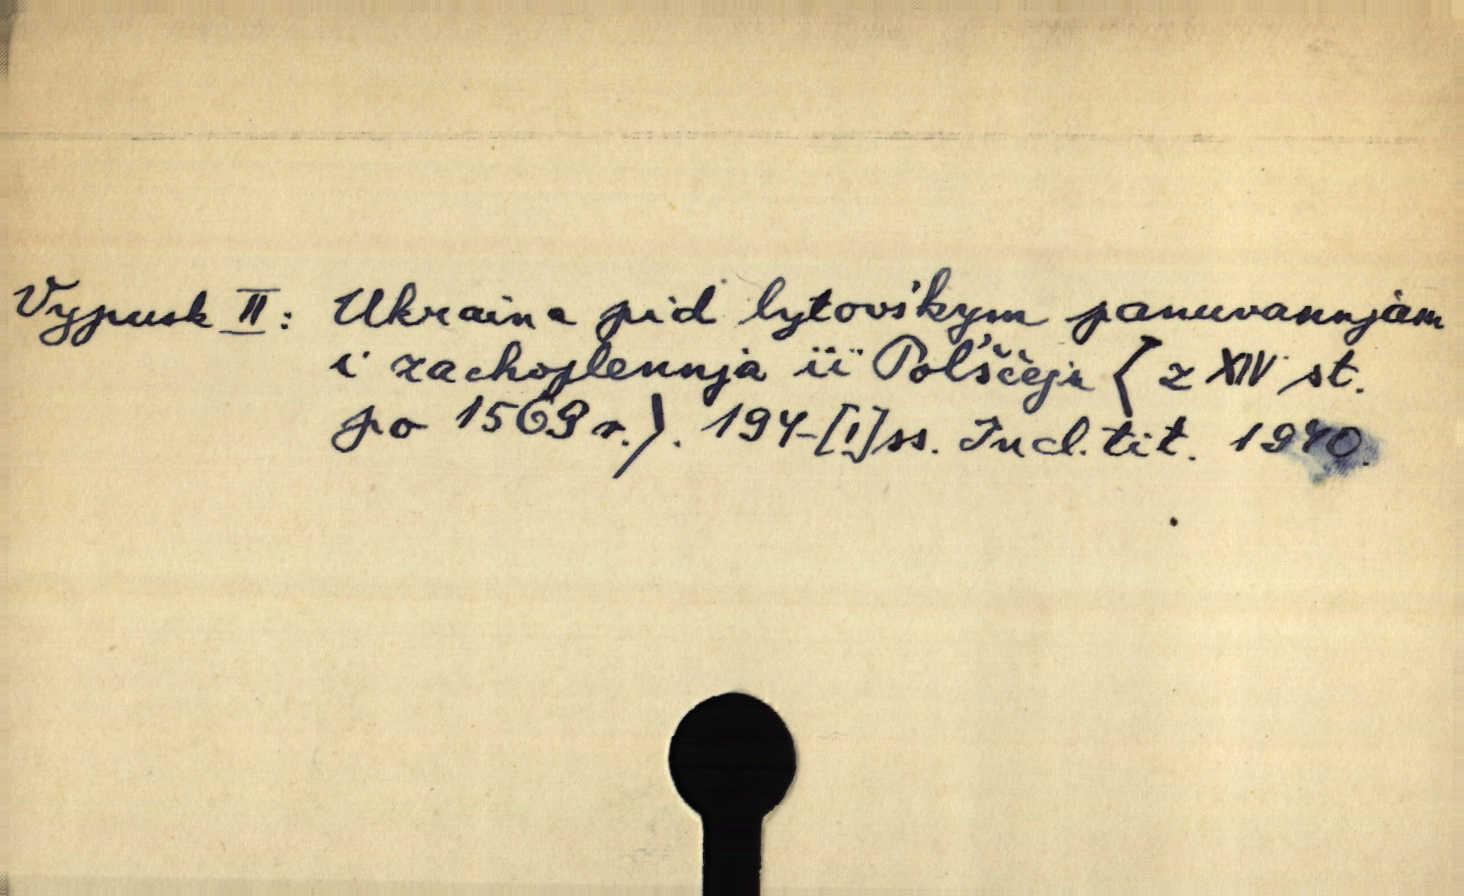 Vypusk II: Ukraina pid lytovs'kym panuvannjam
i zachoplennja ïï Pol'ščeju < z XIV st.
po 1569 r.>. 194-[!]ss. Incl. tit. 1940.